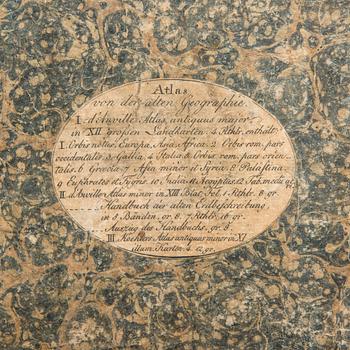 Atlas
von der alten Geographie.
I. d'Anville Atlas antiquus major
in XII großen Landkarten. 4 Rthlr. enthält
1. Orbis notus, Europa, Asia, Africa. 2 Orbis rom. pars
occidentalis. 3. Gallia. 4 Italia 5 Orbis rom. pars orien
talis. 6 Grecia 7 Asia minor et Syria. 8 Palæstina.
9 Euphrates et Tigris. 10 India. 11 Aegyptus. 12
II. Anville Atlas minor in XIII 1 Rthlr. 8 gr.
Handbuch der alten Erdbeschreibung
in 5 Bänden, gr. 8. 7 Rthlr. 16 gr.
Auszug des Handbuchs, gr. 8.
III Koehlers Atlas antiquus minor in XI
illum. Karten. 4. 12 gr.